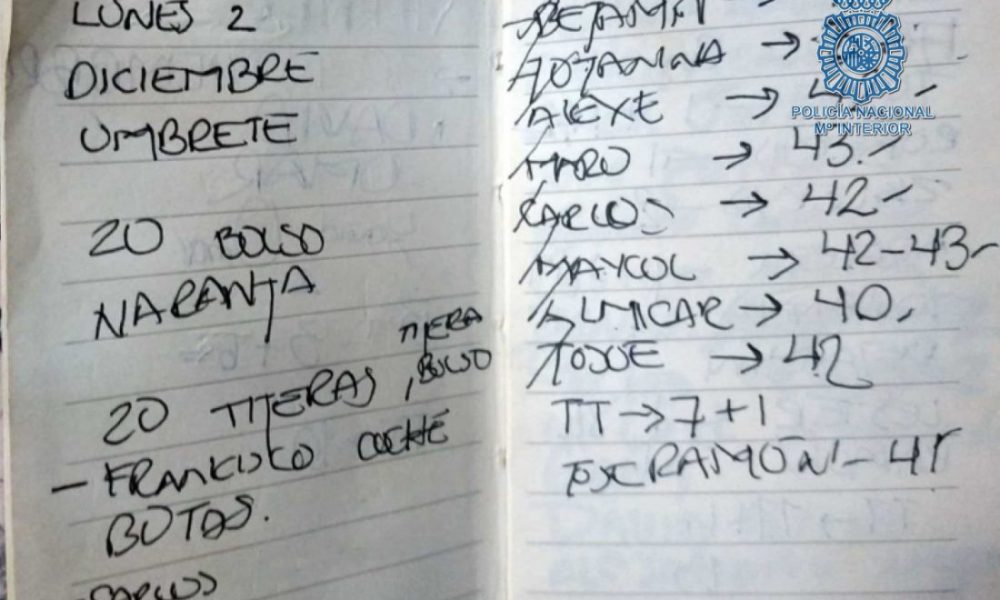 LUNES 2
DICIEMBRE
UMBRETE
20 BOLSO
NARANJA
TIJERA
20 TIJERAS, BOLSO
- FRANCISCO COCHE
BOTAS.
- CARLOS
→
ALEXE →
→ 43.-
CARLOS → 42-
MAYCOL → 42-43-
ALMICAR → 40,
JOSUE → 42
TT → 7+1
- 41
POLICÍA NACIONAL
Mº INTERIOR